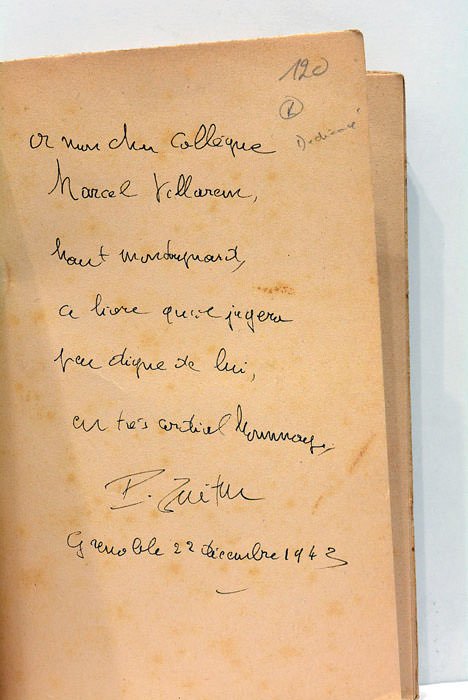 120
Dédicacé
à mon cher Collègue
Marcel Villarem,
haut montagnard,
ce livre qu'il jugera
peu digne de lui,
en très cordial hommage,
Grenoble 22 décembre 1943